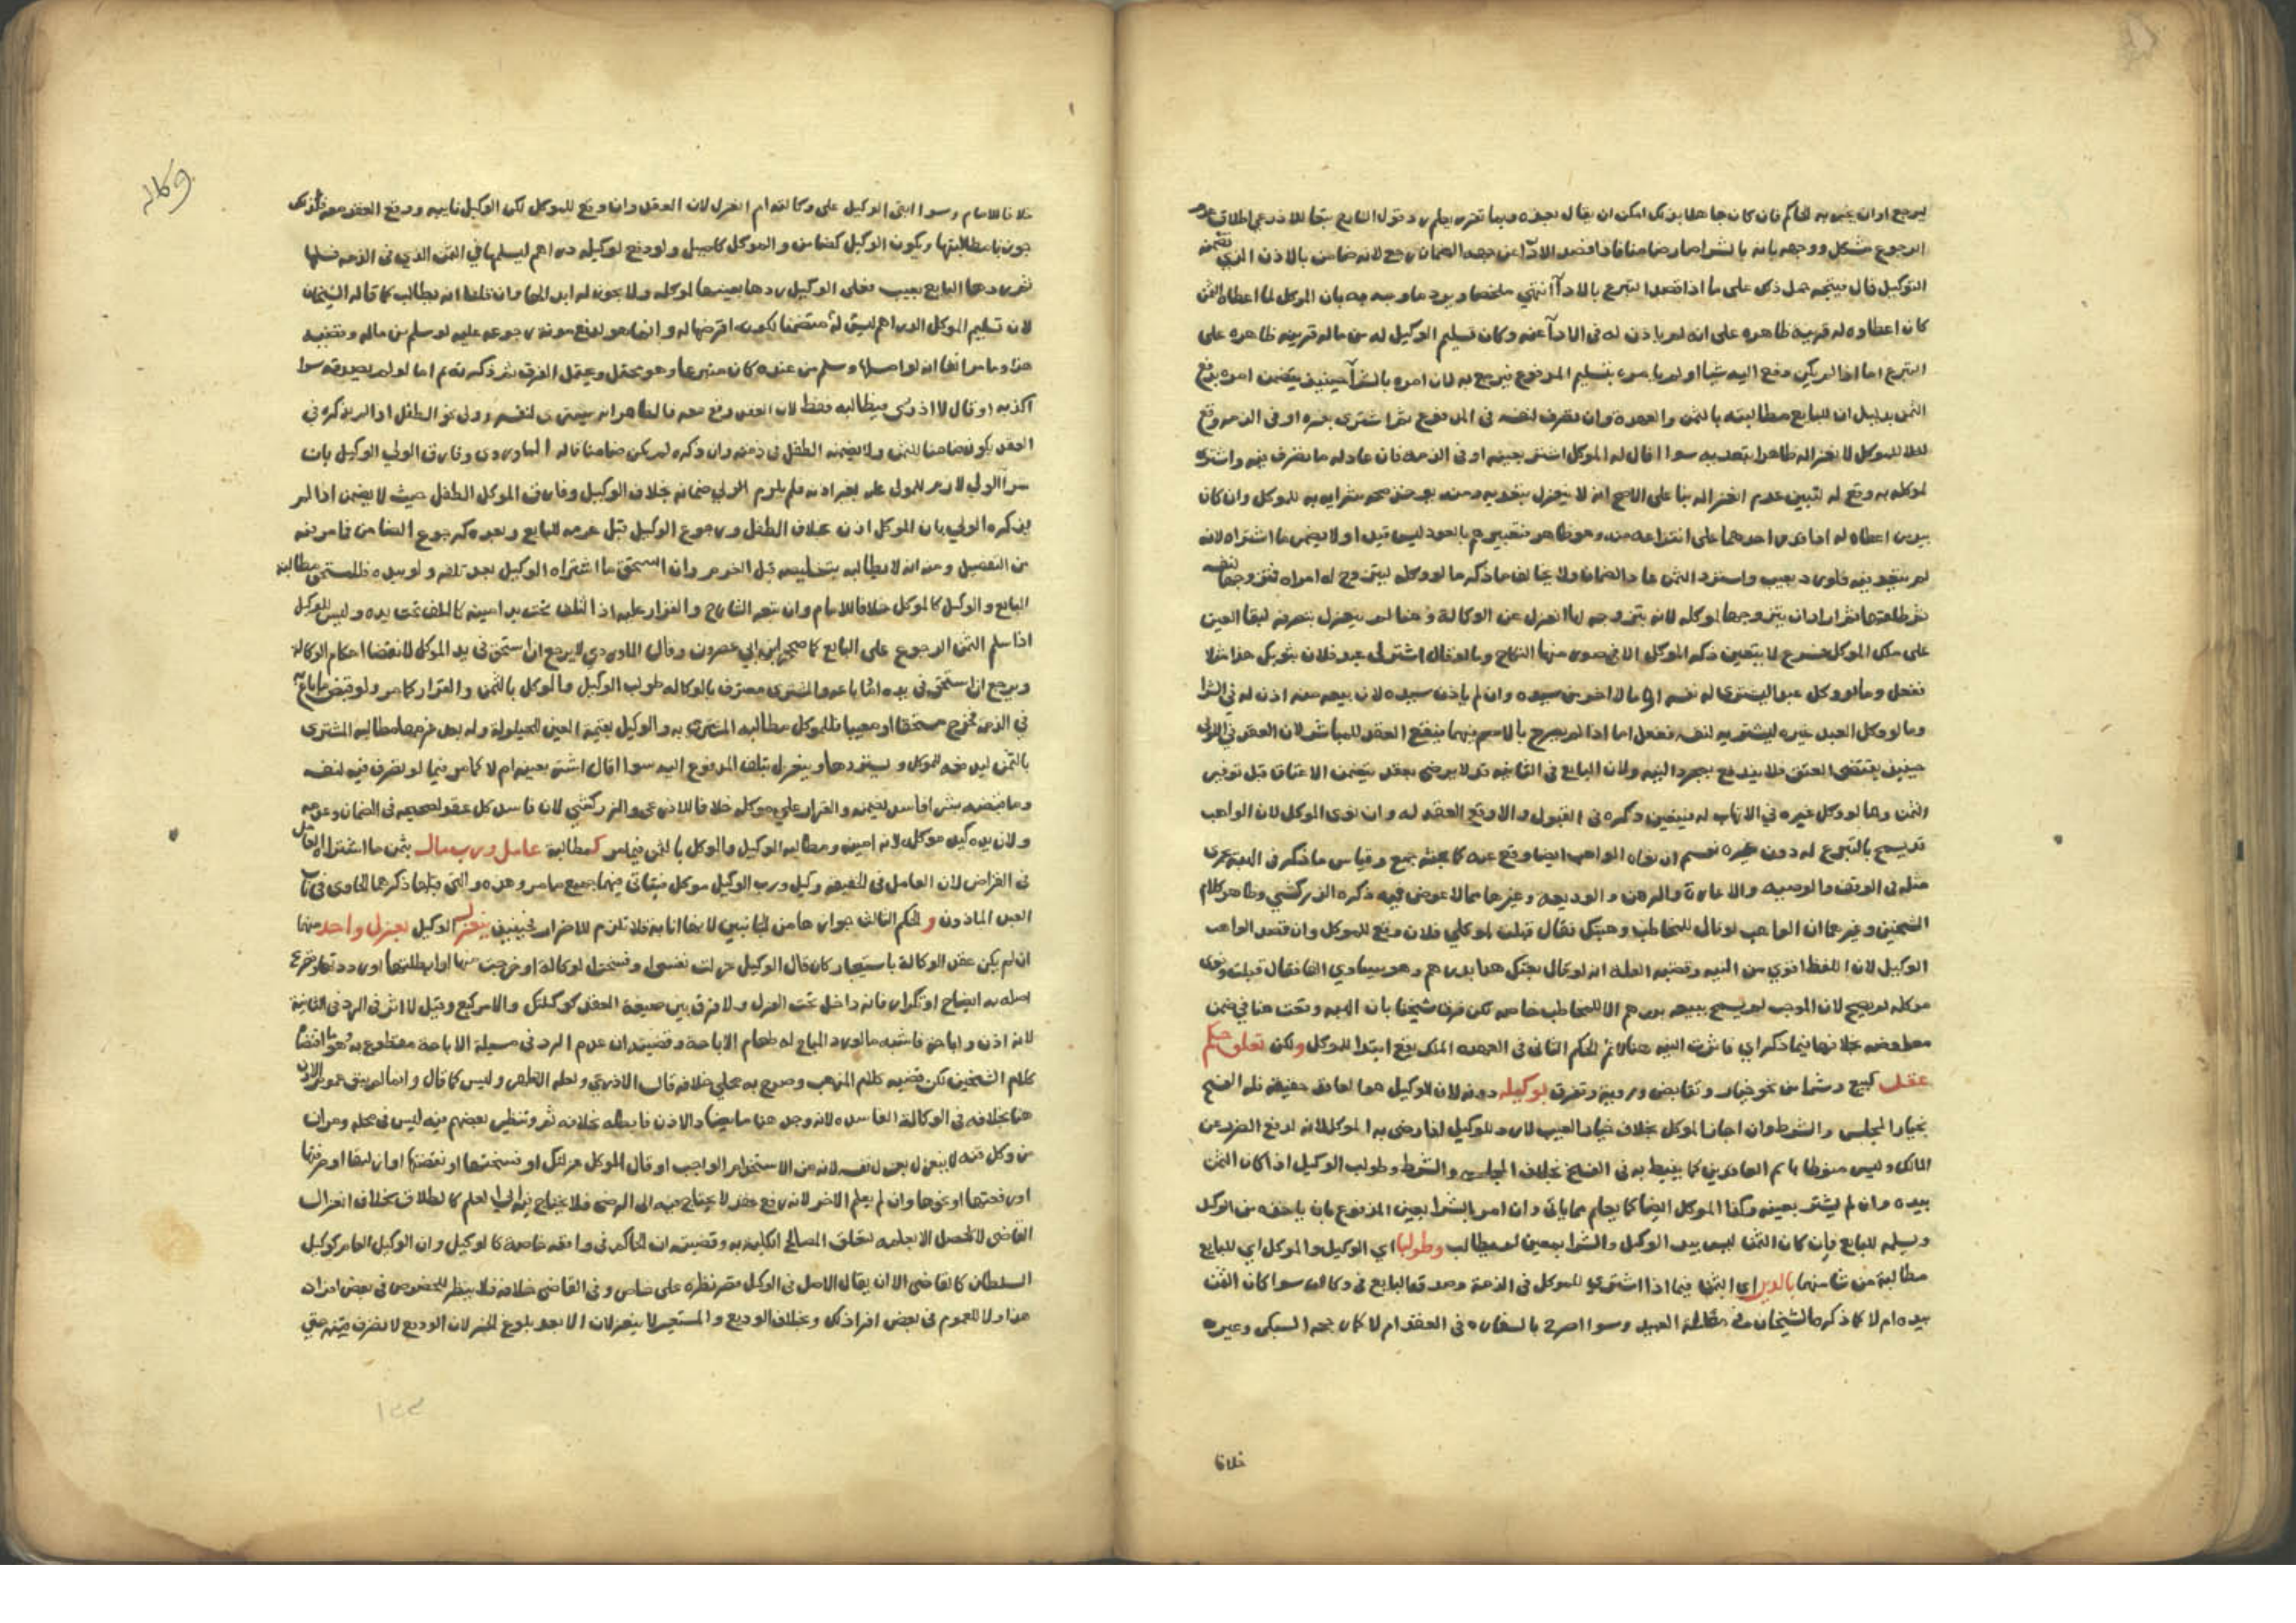 يرجع اوان غير به الحاكم فان كان جاهلا بذلك امكن ان يقال بعذره وبما تقرر يعلم رد قول التابع تبعا للاذرعي اطلاق عدم
الرجوع مشكل ووجهه بانه بالشرا صار ضامنا فاذا قصد الادا عن جهة الضمان رجع لانه ضامن بالاذن الذي تضمنه
التوكيل قال فيتجه حمل ذلك على ما اذا قصد التبرع بالادا انتهى ملخصا ويرد ما وجه به بان الموكل لما اعطاه الثمن
كان اعطاوه له قرينة ظاهره على انه لم ياذن له في الادا عنه وكان تسليم الوكيل له من ماله قرينه ظاهره على
التبرع اما اذا لم يكن دفع اليه شيا او لم يامره بتسليم المدفوع فيرجع به لان امره بالشرا حينيذ يتضمن امره بدفع
الثمن بدليل ان للبايع مطالبته بالثمن والعهدة وان تصرف لنفسه في المدفوع ثم اشترى بغيره او في الذمه وقع
للموكل لا نعزاله ظاهرا بتعديه سوا اقال له الموكل اشتر بعينه او في الذمه فان عاد له ما تصرف فيه واشترى
لموكله به وقع له لتبين عدم انعزاله بنا على الاصح انه لا ينعزل بتعديه ومنه يوخذ صحه شرايه به للموكل وان كان
بيد من اعطاه له اذا قدر احدهما على انتزاعه منه وهو ظاهر فتعبيرهم بالعود ليس قيدا ولا يضمن ما اشتراه لانه
لم يتعد فيه فلو رد بعيب واسترد الثمن عاد الضمان ولا يخالف ما ذكر ما لو وكله ليتزوج له امراه فتزوجها لنفسه
ثم طلقها ثم اراد ان يتزوجها لموكله لانه بتزوجه لها انعزل عن الوكالة وهنا لم ينعزل بتصرفه لبقا العين
على ملك الموكل فرع لا يتعين ذكر الموكل الا في صور منها النكاح وما لو قال اشتر لي عبد فلان بثوبك هذا مثلا
ففعل وما لو وكل عبدا ليشتري له نفسه او مالا اخر من سيده وان لم ياذن سيده لان بيعه منه اذن له في الشرا
وما لو وكل العبد غيره ليشتريه لنفسه ففعل اما اذا لم يصرح بالاسم فيهما فيقع العقد للمباشر لان العقد في الاولى
حينيذ يقتضي العتق فلا يندفع بمجرد النيه ولان البايع في الثانيه قد لا يرضى بعقد يتضمن الاعتاق قبل توفير
الثمن وما لو وكل غيره في الاتهاب له فيتعين ذكره في القبول والا وقع العقد له وان نوى الموكل لان الواهب
قد يسمح بالتبرع له دون غيره نعم ان نواه الواهب ايضا وقع عنه كما بحثه جمع وقياس ما ذكر في الهبه يجري
مثله في الوقف والوصيه والاعارة والرهن والوديعه وغيرها مما لا عوض فيه ذكره الزركشي وظاهر كلام
الشيخين وغيرهما ان الواهب لو قال للمخاطب وهبتك فقال قبلت لموكلي فلان وقع للموكل وان قصد الواهب
الوكيل لان اللفظ اقوى من النيه وقضيه العلة انه لو قال بعتك هذا بدرهم وهو يساوي الفا فقال قبلته ونوى
موكله لم يصح لان الموجب لم يسمح ببيعه بدرهم الا للمخاطب خاصه لكن فرق شيخنا بان الهبه وقعت هنا في ضمن
معاوضه بخلافها فيما ذكر اي فاثرت النيه هناك ثم الحكم الثاني في العهده الملك يقع ابتدا للموكل ولكن تعلق حكم
عقد كبيع وشرا من نحو خيار وتقابض وروية وتفرق بوكيله دونه لان الوكيل هو العاقد حقيقة فله الفسخ
بخيار المجلس والشرط وان اجاز الموكل بخلاف خيار العيب لا رد للوكيل اذا رضي به الموكل لانه لدفع الضرر عن
المالك وليس منوطا باسم العاقدين كما ينيط به في الفسخ بخلاف المجلس والشرط وطولب الوكيل اذا كان الثمن
بيده وان لم يشتر بعينه وكذا الموكل ايضا كما يعلم مما ياتي وان امر بالشرا بعين المدفوع بان ياخذه من الوكيل
ويسلمه للبايع فان كان الثمن ليس بيد الوكيل والشرا بمعين لم يطالب وطولبا اي الوكيل والموكل اي للبايع
مطالبة من شا منهما بالدين اي الثمن فيما اذا اشترى للموكل في الذمة وصدقه البايع في وكالته سوا كان الثمن
بيده ام لا كما ذكره الشيخان في معاملة العبيد وسوا اصرح بالسفاره في العقد ام لا كما رجحه السبكي وغيره
خلافا
وكاله
خلافا للامام وسوا ابقى الوكيل على وكالته ام انعزل لان العقد وان وقع للموكل لكن الوكيل نايبه ووقع العقد معه فلذلك
جوزنا مطالبتهما ويكون الوكيل كضامن والموكل كاصيل ولو دفع لوكيله دراهم ليسلمها في الثمن الذي في الذمه فسلمها
ثم ردها البايع بعيب فعلى الوكيل ردها بعينها لموكله ولا يجوز له ابدالها وان قلنا انه يطالب كما قاله الشيخان
لان تسليم الموكل الدراهم ليس له متضمنا لكونه اقرضها له وانما هو لدفع مونة رجوعه عليه لو سلم من ماله وقضيه
هذا وما مر انفا انه لو امسكها وسلم من عنده كان متبرعا وهو محتمل ويحتمل الفرق ثم ذكرته ثم اما لو لم يصدقه سوا
اكذبه او قال لا ادري فيطالبه فقط لان العقد وقع معه فالظاهر انه يشتري لنفسه وولي نحو الطفل اذا لم يذكره في
العقد يكون ضامنا للثمن ولا يضمنه الطفل في ذمته وان ذكره لم يكن ضامنا قاله الماوردي وفارق الولي الوكيل بان
شرا الولي لازم للمولى عليه بغير اذنه فلم يلزم الولي ضمانه بخلاف الوكيل وفارق الموكل الطفل حيث لا يضمن اذا لم
يذكره الولي بان الموكل اذن بخلاف الطفل ورجوع الوكيل قبل غرمه للبايع وبعده كرجوع الضامن فامر فيه
من التفصيل ومنه انه لا يطالبه بتخليصه قبل الغرم وان استحق ما اشتراه الوكيل بعد تلفه ولو بيده فللمستحق مطالبة
البايع والوكيل كالموكل خلافا للامام وان تبعه الشارح والقرار عليه اذ التلف تحت يد امينه كالتلف تحت يده وليس للوكيل
اذا سلم الثمن الرجوع على البايع كما صححه ابن ابي عصرون وقال الماوردي لا يرجع ان استحق في يد الموكل لانقضا احكام الوكالة
ويرجع ان استحق في يده اما ما باعه والمشتري معترف بالوكاله طولب الوكيل والموكل بالثمن والقرار كما مر ولو قبض ما باع
في الذمه فخرج مستحقا او معيبا فللموكل مطالبه المشتري به والوكيل بقيمة العين للحيلولة وله بعد غرمها مطالبه المشتري
بالثمن ليدفعه للموكل ويستردها وينعزل بتلف المدفوع اليه سوا اقال اشتر بعينه ام لا كما مر فيما لو تصرف فيه لنفسه
وما قبضه بشرا فاسد يضمنه والقرار على موكله خلافا للاذرعي والزركشي لان فاسد كل عقد كصحيحه في الضمان وعدمه
ولان يده كيد موكله لانه امينه ومطالبه الوكيل والموكل بالثمن فيما مر كمطالبة عامل ورب مال بثمن ما اشتراه العامل
في القراض لان العامل في الحقيقه وكيل ورب الوكيل موكل فيتاتى فيهما جميع ما مر وهذه والتي قبلها ذكرهما الحاوي في باب
العبد الماذون والحكم الثالث جوازها من الجانبين لانها انابة فلا تلزم للاضرار فحينيذ ينعزل الوكيل بعزل واحد منهما
ان لم يكن عقد الوكالة باستيجار كان قال الوكيل عزلت نفسي او فسخت الوكالة او خرجت منها او ابطلتها او رددتها وتفرع
اصله به ايضاح او تكرار فانه داخل تحت العزل ولا فرق بين صيغة العقد كوكلتك والامر كبع وقيل لا اثر في الرد في الثانية
لانه اذن واباحة فاشبه ما لو رد المباح له طعام الاباحة وقضيته ان عدم الرد في مسيلة الاباحة مقطوع به وهو ما اقتضاه
كلام الشيخين لكن قضيه كلام المذهب وصرح به مجلي خلافه قال الاذرعي ولعله الظاهر وليس كما قال وانما لم يبق عموم الاذن
هنا بخلافه في الوكالة الفاسده لانه وجد هنا ما يضاد الاذن فابطله بخلافه ثم وتنظير بعضهم فيه ليس في محله ومر ان
من وكل قنه لا ينعزل بعزل نفسه لانه من الاستخدام الواجب او قال الموكل عزلتك او فسختها او نقضتها او ازلتها او صرفتها
او رفعتها او نحوها وان لم يعلم الاخر لانه رفع عقد لا يحتاج فيه الى الرضى فلا يحتاج فيه الى العلم كالطلاق بخلاف انعزال
القاضي لا يحصل الا بعلمه لتعلق المصالح الكليه به وقضيته ان الحاكم في واقعه خاصة كالوكيل وان الوكيل العام كوكيل
السلطان كالقاضي الا ان يقال الاصل في الوكيل قصر نظره على خاص وفي القاضي خلافه فلا ينظر للخصوص في بعض افراد
هذا ولا للعموم في بعض افراد ذلك وبخلاف الوديع والمستعير لا ينعزلان الا بعد بلوغ الخبر لان الوديع لا تصرف فيه حتى
١٢٣